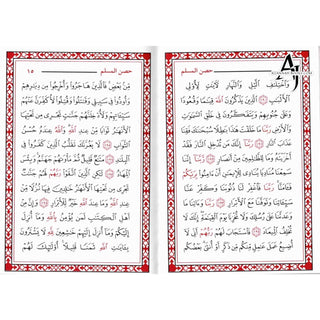 حصن المسلم
وَاخْتِلَافِ الَّيْلِ وَالنَّهَارِ لَآيَاتٍ لِّأُولِي
الْأَلْبَابِ الَّذِينَ يَذْكُرُونَ اللَّهَ قِيَامًا وَقُعُودًا
وَعَلَىٰ جُنُوبِهِمْ وَيَتَفَكَّرُونَ فِي خَلْقِ السَّمَاوَاتِ
وَالْأَرْضِ رَبَّنَا مَا خَلَقْتَ هَٰذَا بَاطِلًا سُبْحَانَكَ فَقِنَا
عَذَابَ النَّارِ رَبَّنَا إِنَّكَ مَن تُدْخِلِ النَّارَ فَقَدْ
أَخْزَيْتَهُ وَمَا لِلظَّالِمِينَ مِنْ أَنصَارٍ
رَّبَّنَا إِنَّنَا سَمِعْنَا مُنَادِيًا يُنَادِي لِلْإِيمَانِ أَنْ آمِنُوا بِرَبِّكُمْ
فَآمَنَّا رَبَّنَا فَاغْفِرْ لَنَا ذُنُوبَنَا وَكَفِّرْ عَنَّا
سَيِّئَاتِنَا وَتَوَفَّنَا مَعَ الْأَبْرَارِ رَبَّنَا وَآتِنَا مَا
وَعَدتَّنَا عَلَىٰ رُسُلِكَ وَلَا تُخْزِنَا يَوْمَ الْقِيَامَةِ إِنَّكَ لَا
تُخْلِفُ الْمِيعَادَ فَاسْتَجَابَ لَهُمْ رَبُّهُمْ أَنِّي لَا
أُضِيعُ عَمَلَ عَامِلٍ مِّنكُم مِّن ذَكَرٍ أَوْ أُنثَىٰ بَعْضُكُم
حصن المسلم ١٥
مِّن بَعْضٍ فَالَّذِينَ هَاجَرُوا وَأُخْرِجُوا مِن دِيَارِهِمْ
وَأُوذُوا فِي سَبِيلِي وَقَاتَلُوا وَقُتِلُوا لَأُكَفِّرَنَّ عَنْهُمْ
سَيِّئَاتِهِمْ وَلَأُدْخِلَنَّهُمْ جَنَّاتٍ تَجْرِي مِن تَحْتِهَا
الْأَنْهَارُ ثَوَابًا مِّنْ عِندِ اللَّهِ وَاللَّهُ عِندَهُ حُسْنُ
الثَّوَابِ لَا يَغُرَّنَّكَ تَقَلُّبُ الَّذِينَ كَفَرُوا فِي
الْبِلَادِ مَتَاعٌ قَلِيلٌ ثُمَّ مَأْوَاهُمْ جَهَنَّمُ وَبِئْسَ
الْمِهَادُ لَٰكِنِ الَّذِينَ اتَّقَوْا رَبَّهُمْ لَهُمْ جَنَّاتٌ
تَجْرِي مِن تَحْتِهَا الْأَنْهَارُ خَالِدِينَ فِيهَا نُزُلًا مِّنْ
عِندِ اللَّهِ وَمَا عِندَ اللَّهِ خَيْرٌ لِّلْأَبْرَارِ وَإِنَّ مِنْ
أَهْلِ الْكِتَابِ لَمَن يُؤْمِنُ بِاللَّهِ وَمَا أُنزِلَ
إِلَيْكُمْ وَمَا أُنزِلَ إِلَيْهِمْ خَاشِعِينَ لِلَّهِ لَا يَشْتَرُونَ
بِآيَاتِ اللَّهِ ثَمَنًا قَلِيلًا أُولَٰئِكَ لَهُمْ